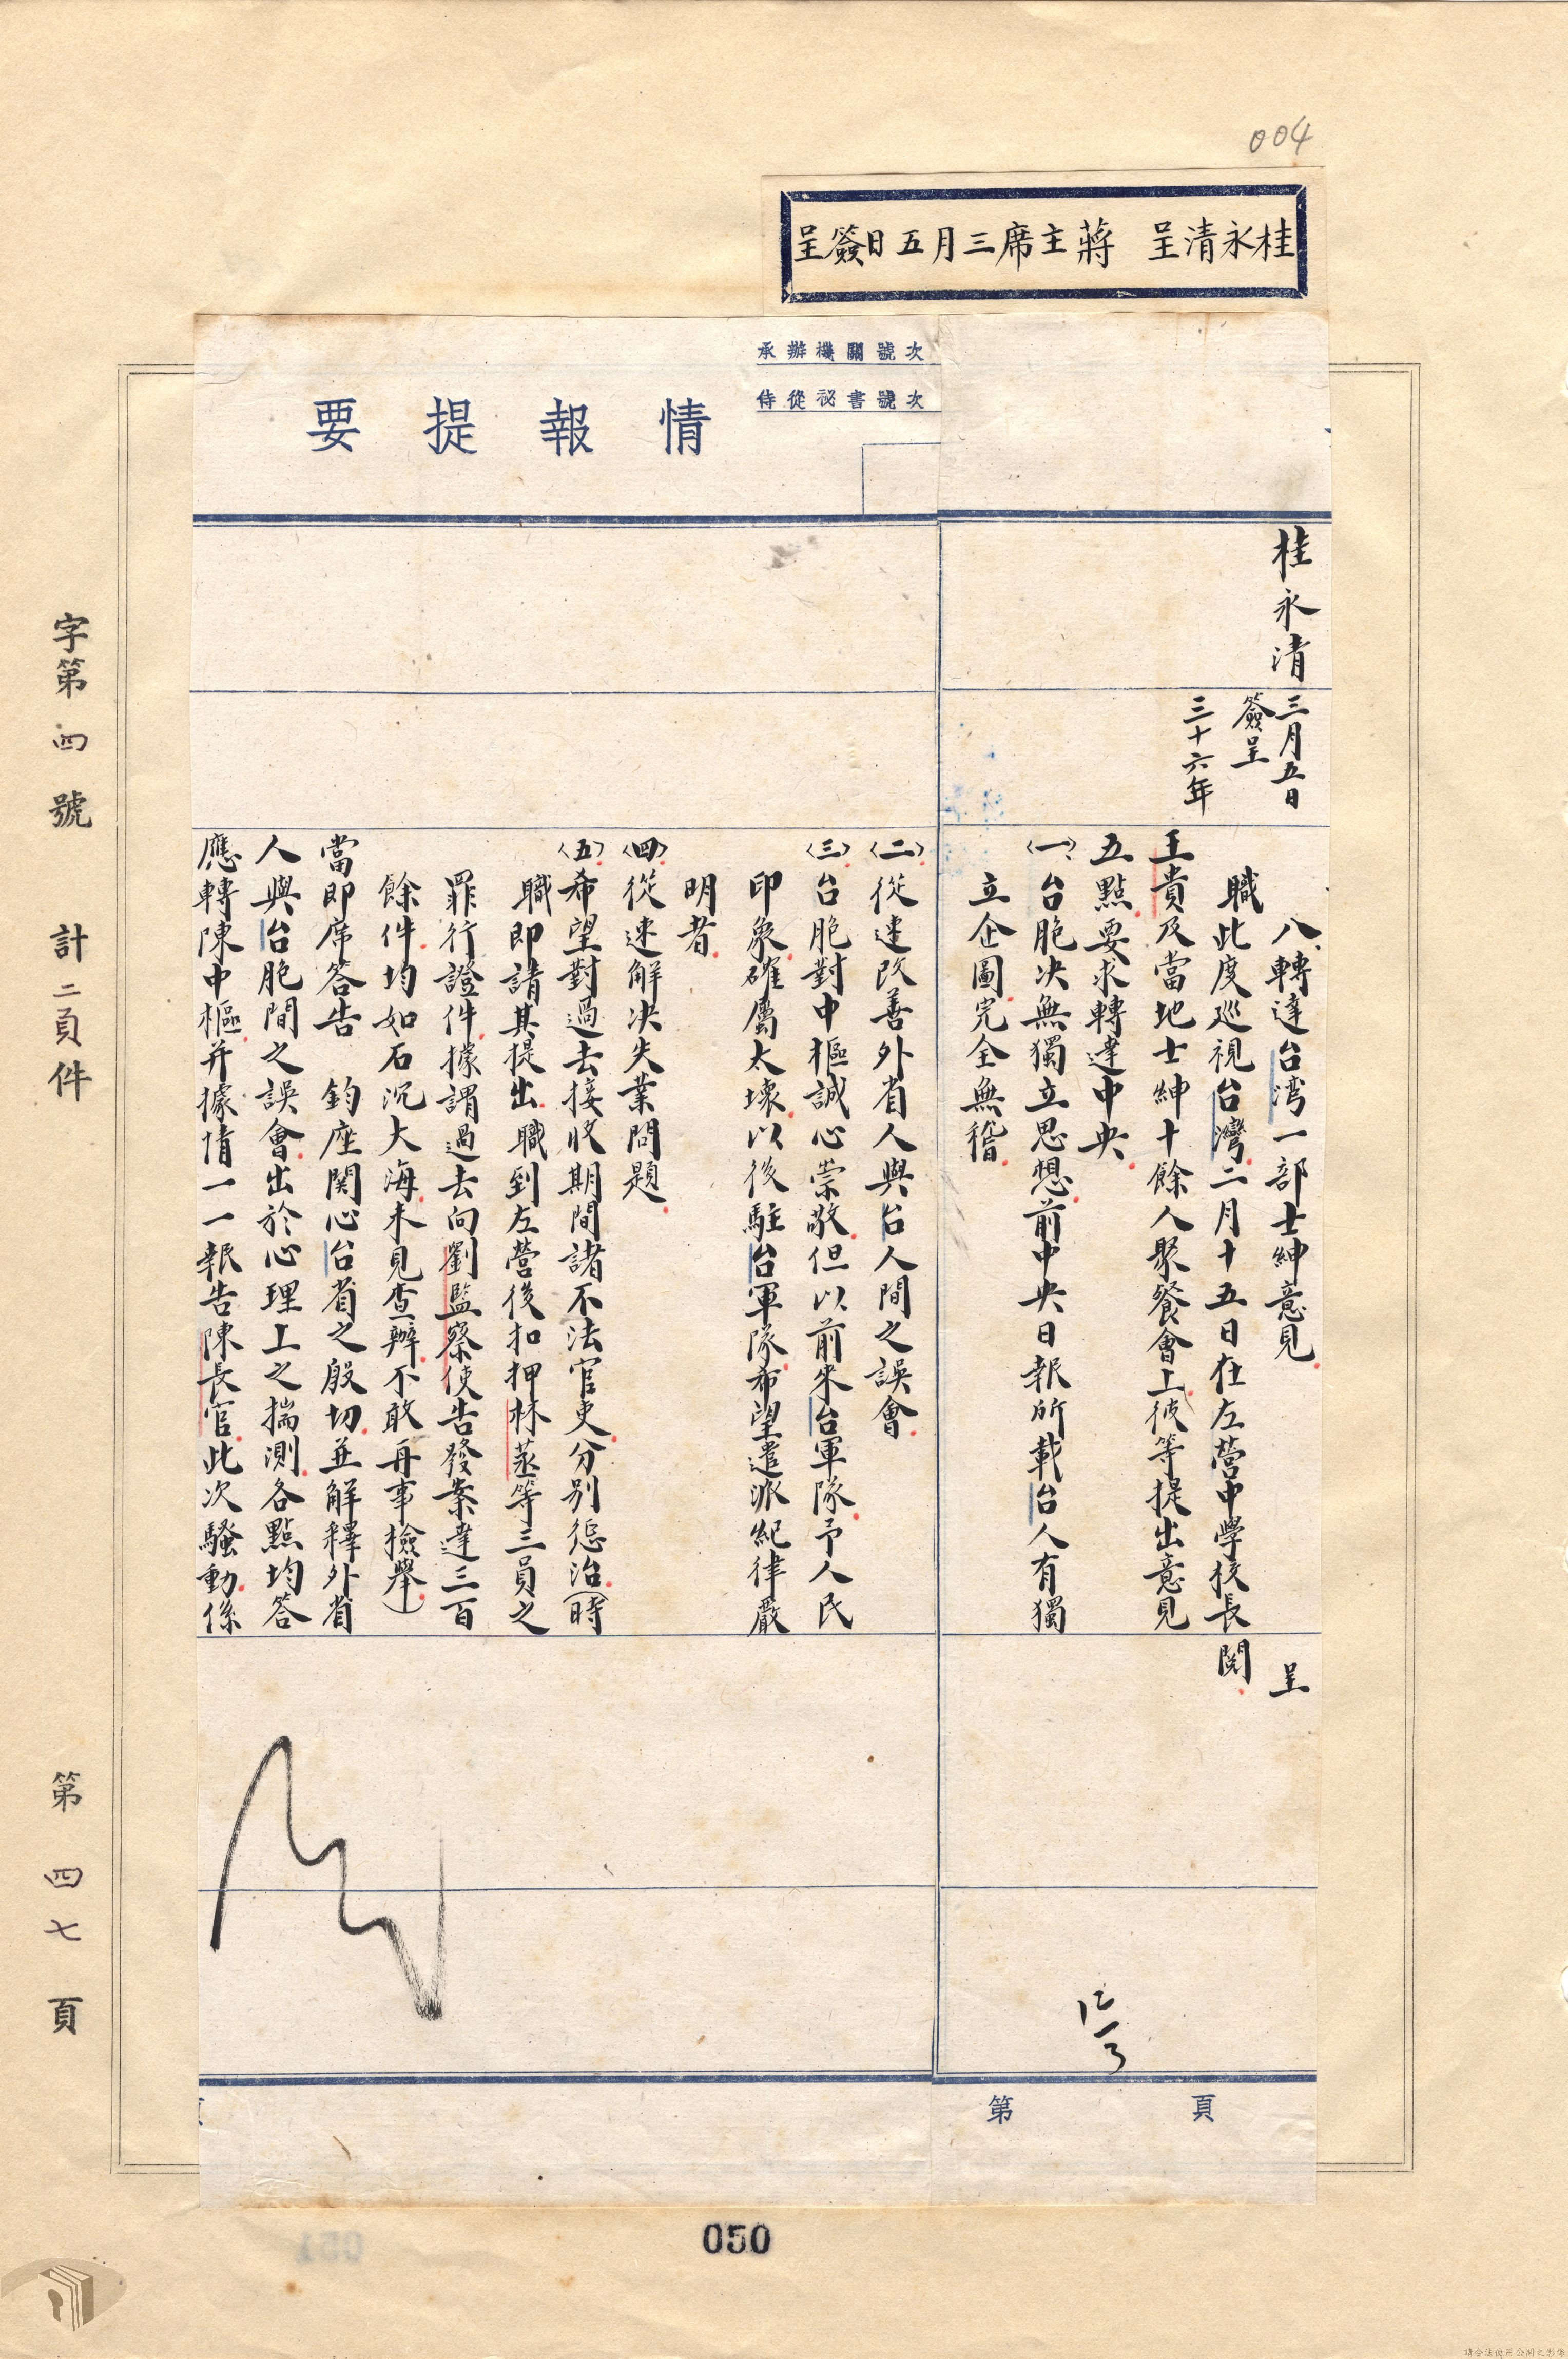 004
桂永清呈 蔣主席三月五日簽呈
承辦機關號次
侍從祕書號次
情報提要
桂永清
三月五日
簽呈
三十六年
八、轉達台湾一部士紳意見
職此度巡視台灣二月十五日在左營中學校長
王貴及當地士紳十餘人聚餐會上彼等提出意見
五點要求轉達中央
〈一〉、台胞決無獨立思想前中央日報所載台人有獨
立企圖完全無稽
〈二〉從速改善外省人與台人間之誤會
〈三〉台胞對中樞誠心崇敬但以前來台軍隊予人民
印象確屬太壞以後駐台軍隊希望遣派紀律嚴
明者
〈四〉從速解決失業問題
〈五〉希望對過去接收期間諸不法官吏分別懲治(時
職即請其提出職到左營後扣押林蒸等三員之
罪行證件據謂過去向劉監察使告發案達三百
餘件均如石沉大海未見查辦不敢再事檢舉)
當即席答告 鈞座関心台省之殷切並解釋外省
人與台胞間之誤會出於心理上之揣測各點均答
應轉陳中樞并據情一一報告陳長官此次騷動係
呈
閱
第 頁
字第四號 計二頁件 第四七頁
050
請合法使用公開之影像